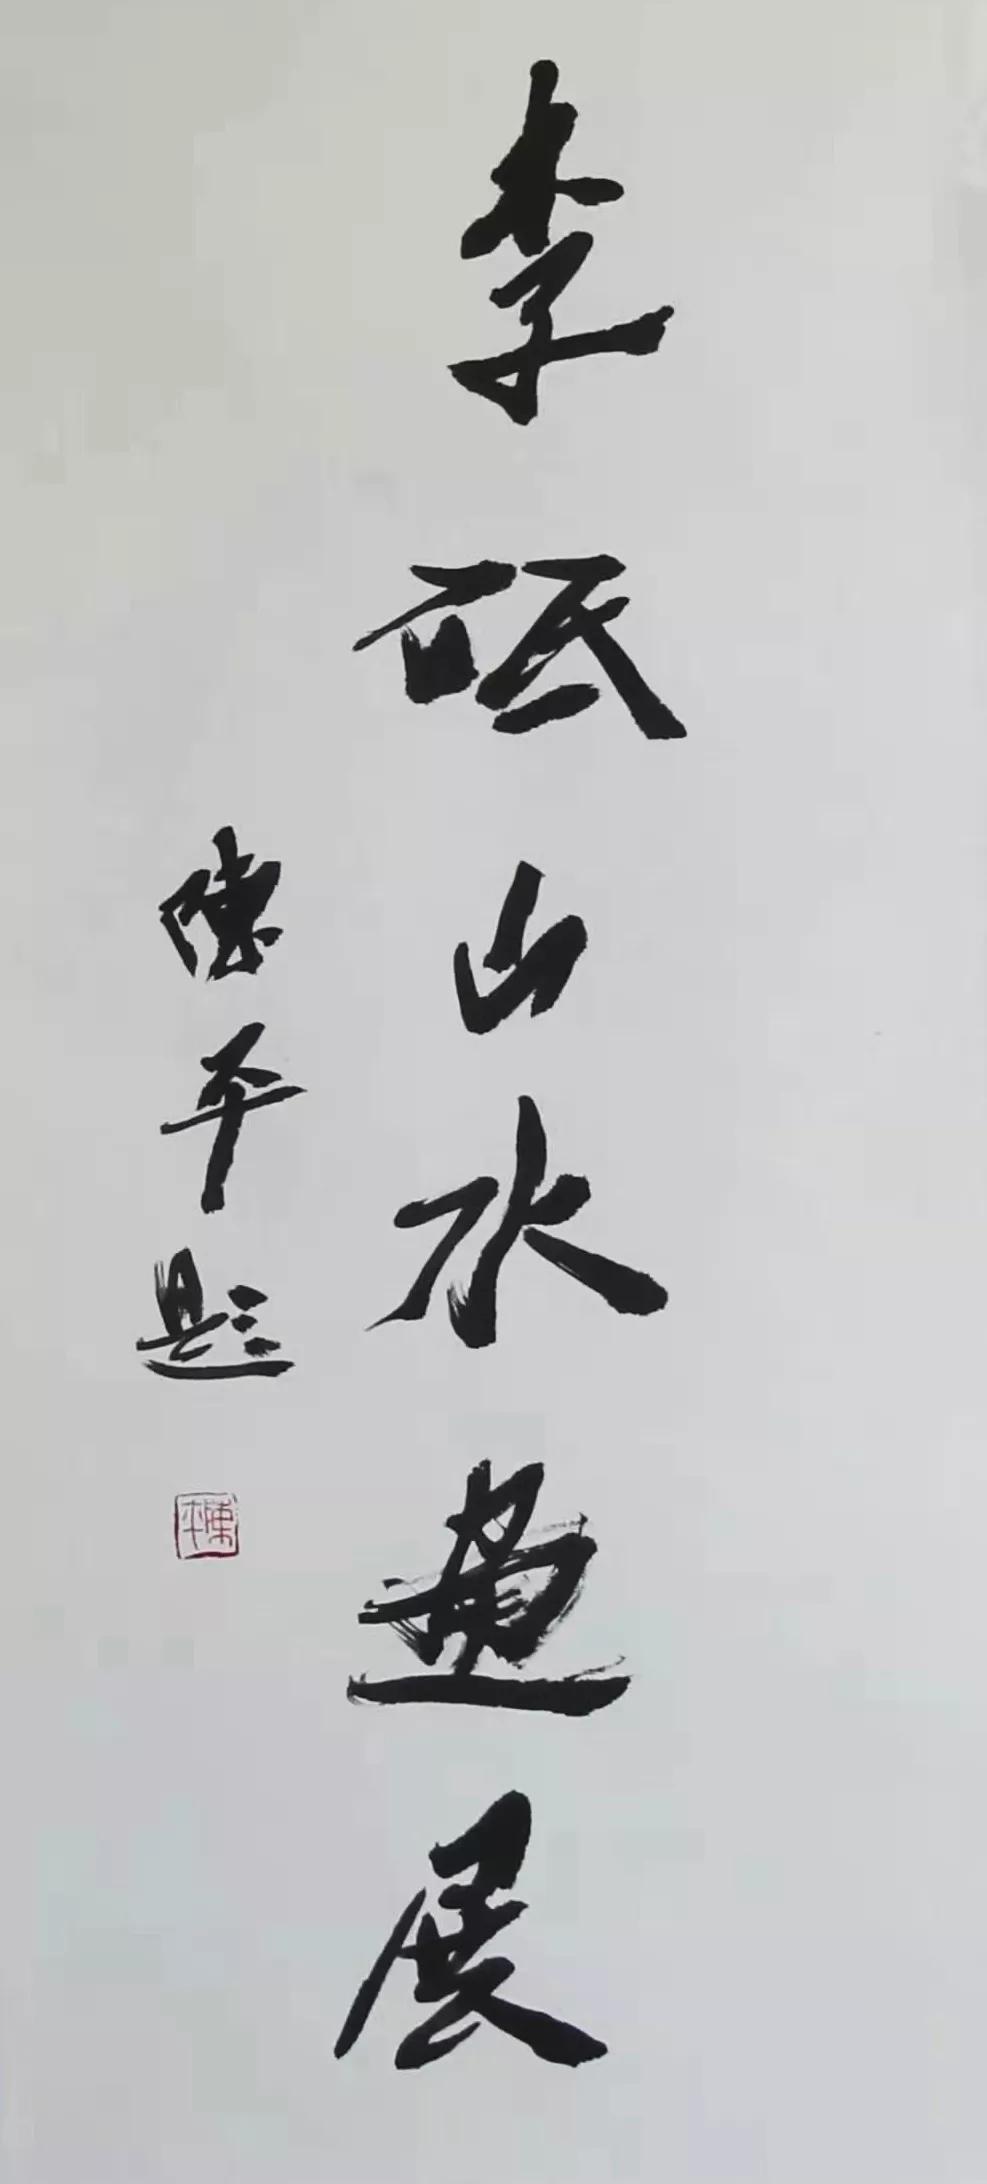 李砥山水畫展
陳平題
陳平